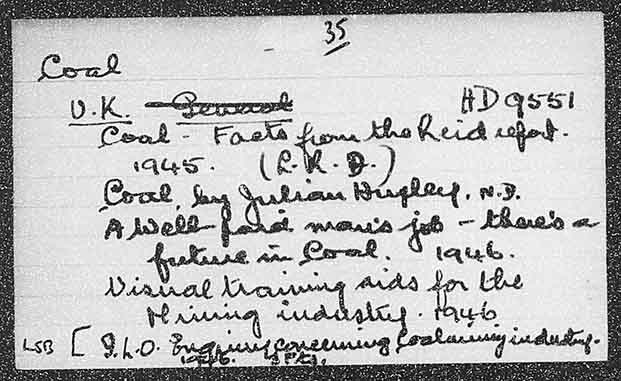 35
Coal
U.K. General HD 9551
Coal - Facts from the Reid report.
1945. (L.R.D.)
Coal, by Julian Huxley. N.D.
A Well paid man's job - there's a
future in Coal. 1946.
Visual training aids for the
Mining industry. 1946
LSB [ I.L.O. Enquiry concerning Coalmining industry.
1946. 3 pts.